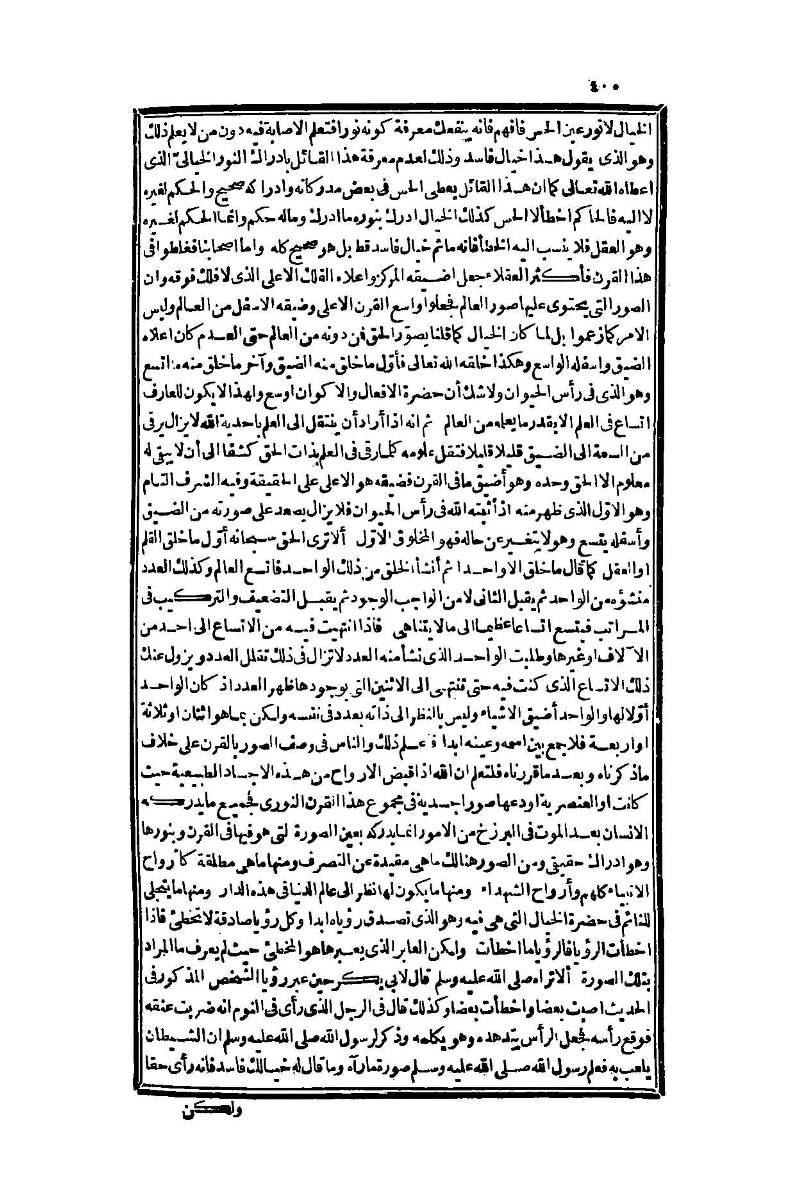 ٤٠٠
الخيال لا نور عين الحس فافهم فانه ينفعك معرفة كونه نورا فتعلم الاصابة فيه دون من لا يعلم ذلك
وهو الذى يقول هذا خيال فاسد وذلك لعدم معرفة هذا القائل بادراك النور الخيالىّ الذى
اعطاه الله تعالى كما ان هذا القائل يعطى الحس فى بعض مدركاته وادراكه صحيح والحكم لغيره
لا اليه فالحاكم اخطأ لا الحس كذلك الخيال ادرك بنوره ما ادرك وماله حكم وانما الحكم لغيره
وهو العقل فلا ينسب اليه الخطأ فانه ماثم خيال فاسد قط بل هو صحيح كله واما اصحابنا فغلطوا فى
هذا القرن فأكثر العقلاء جعل اضيقه المركز واعلاه الفلك الاعلى الذى لا فلك فوقه وان
الصور التى يحتوى عليها صور العالم فجعلوا واسع القرن الاعلى وضيقه الاسفل من العالم وليس
الامر كما زعموا بل لما كان الخيال كما قلنا يصوّر الحق فمن دونه من العالم حتى العدم كان اعلاه
الضيق واسفله الواسع وهكذا خلقه الله تعالى فأول ما خلق منه الضيق وآخر ما خلق منه ما اتسع
وهو الذى فى رأس الحيوان ولا شك أن حضرة الافعال والاكوان اوسع ولهذا لا يكون للعارف
اتساع فى العلم الا بقدر ما يعلمه من العالم ثم انه اذا أراد أن ينتقل الى العلم باحدية الله لا يزال يرقى
من السعة الى الضيق قليلا قليلا فتقل علومه كلما رقى فى العلم بذات الحق كشفا الى أن لا يبقى له
معلوم الا الحق وحده وهو أضيق ما فى القرن فضيقه هو الاعلى على الحقيقة وفيه الشرف التام
وهو الاول الذى ظهر منه اذ أثبته الله فى رأس الحيوان فلا يزال يصعد على صورته من الضيق
وأسفله يتسع وهو لا يتغير عن حاله فهو المخلوق الاول ألا ترى الحق سبحانه أول ما خلق القلم
او العقل كما قال ما خلق الا واحدا ثم أنشأ الخلق من ذلك الواحد فاتسع العالم وكذلك العدد
منشؤه من الواحد ثم يقبل الثانى لا من الواجب الوجود ثم يقبل التضعيف والتركيب فى
المراتب فيتسع اتساعا عظيما الى ما لا يتناهى فاذا انتهيت فيه من الاتساع الى احد من
الآلاف او غيرها وطلبت الواحد الذى نشأ منه العدد لا تزال فى ذلك تقلل العدد ويزول عنك
ذلك الاتساع الذى كنت فيه حتى تنتهى الى الاثنين التى بوجودها ظهر العدد اذ كان الواحد
أولا لها والواحد أضيق الاشياء وليس بالنظر الى ذاته بعدد فى نفسه ولكن بما هو اثنان او ثلاثة
او اربعة فلا يجمع بين اسمه وعينه ابدا فاعلم ذلك والناس فى وصف الصور بالقرن على خلاف
ما ذكرناه وبعد ما قررناه فلتعلم ان الله اذا قبض الارواح من هذه الاجساد الطبيعية حيث
كانت او العنصرية اودعها صورا جسدية فى مجموع هذا القرن النورى فجميع ما يدركه
الانسان بعد الموت فى البرزخ من الامور انما يدركه بعين الصورة التى هو فيها فى القرن وبنورها
وهو ادراك حقيقى ومن الصور هنالك ما هى مقيدة عن التصرف ومنها ما هى مطلقة كأرواح
الانبياء كلهم وأرواح الشهداء ومنها ما يكون لها نظر الى عالم الدنيا فى هذه الدار ومنها ما يتجلى
للنائم فى حضرة الخيال التى هى فيه وهو الذى تصدق رؤياه ابدا وكل رؤيا صادقة لا تخطئ فاذا
اخطأت الرؤيا فالرؤيا ما اخطأت ولكن العابر الذى يعبرها هو المخطئ حيث لم يعرف ما المراد
بتلك الصورة ألا تراه صلى الله عليه وسلم قال لابى بكر حين عبر رؤيا الشخص المذكور فى
الحديث اصبت بعضا واخطأت بعضا وكذلك قال فى الرجل الذى رأى فى النوم انه ضربت عنقه
فوقع رأسه فجعل الرأس يتدهده وهو يكلمه وذكر لرسول الله صلى الله عليه وسلم ان الشيطان
يلعب به فعلم رسول الله صلى الله عليه وسلم صورة ما رآه وما قال له خيالك فاسد فانه رأى حقا
ولكن